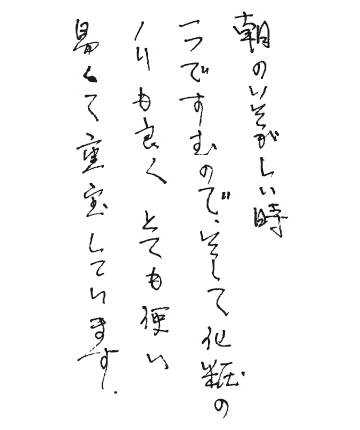 朝のいそがしい時
一つですむので、そして化粧の
ノリも良く とても使い
易くて重宝しています.